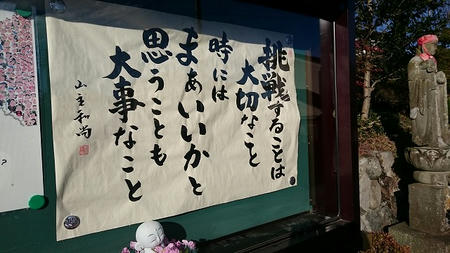 挑戦することは
大切なこと
時には
まぁいいかと
思うことも
大事なこと
山主和尚